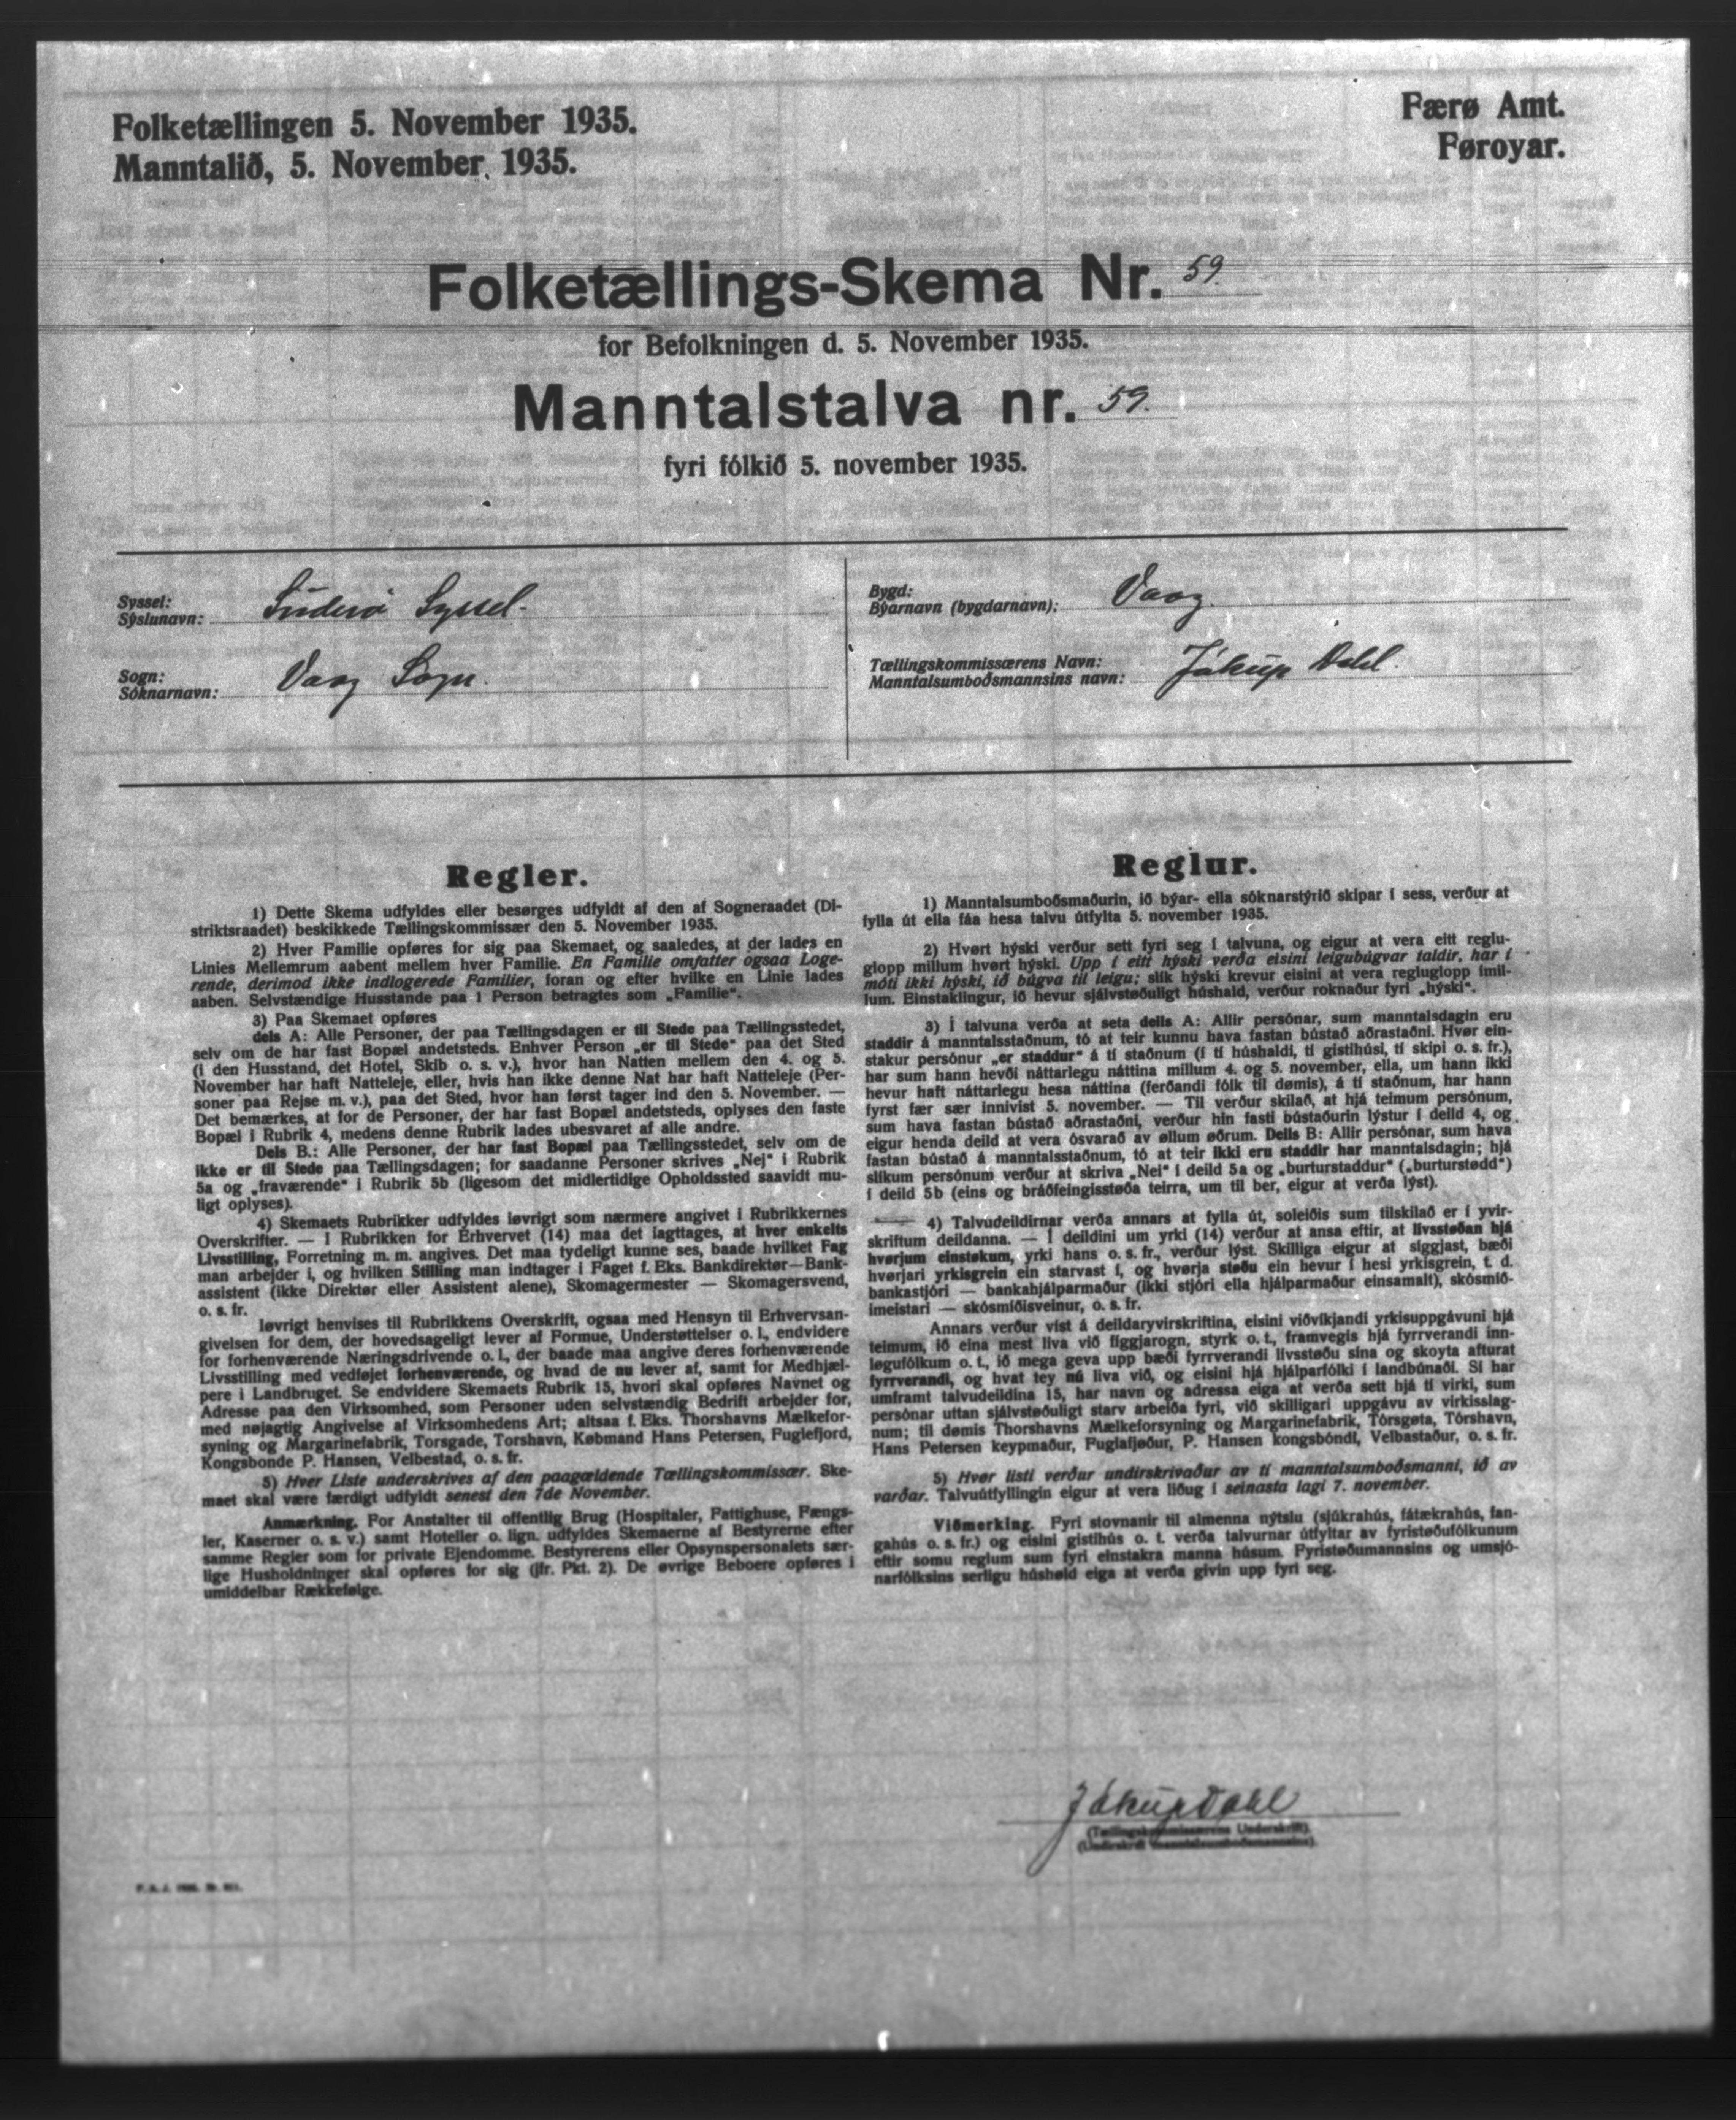 Folketællingen 5. November 1935.
Manntalið, 5. November 1935.
Færø Amt.
Føroyar.
Folketællings-Skema Nr. 59.
for Befolkningen d. 5. November 1935.
Manntalstalva nr. 59.
fyri fólkið 5. november 1935.
Syssel:
Sýslunavn: Suderø Syssel.
Sogn:
Sóknarnavn: Vaag Sogn.
Bygd:
Býarnavn (bygdarnavn): Vaag.
Tællingskommissærens Navn:
Manntalsumboðsmannsins navn: Jákup Dahl.
Regler.
1) Dette Skema udfyldes eller besørges udfyldt af den af Sogneraadet (Di-
striktsraadet) beskikkede Tællingskommissær den 5. November 1935.
2) Hver Familie opføres for sig paa Skemaet, og saaledes, at der lades en
Linies Mellemrum aabent mellem hver Familie. En Familie omfatter ogsaa Loge-
rende, derimod ikke indlogerede Familier, foran og efter hvilke en Linie lades
aaben. Selvstændige Husstande paa 1 Person betragtes som „Familie“.
3) Paa Skemaet opføres
dels A: Alle Personer, der paa Tællingsdagen er til Stede paa Tællingsstedet,
selv om de har fast Bopæl andetsteds. Enhver Person „er til Stede“ paa det Sted
(i den Husstand, det Hotel, Skib o. s. v.), hvor han Natten mellem den 4. og 5.
November har haft Natteleje, eller, hvis han ikke denne Nat har haft Natteleje (Per-
soner paa Rejse m. v.), paa det Sted, hvor han først tager ind den 5. November. —
Det bemærkes, at for de Personer, der har fast Bopæl andetsteds, oplyses den faste
Bopæl i Rubrik 4, medens denne Rubrik lades ubesvaret af alle andre.
Dels B.: Alle Personer, der har fast Bopæl paa Tællingsstedet, selv om de
ikke er til Stede paa Tællingsdagen; for saadanne Personer skrives „Nej“ i Rubrik
5a og „fraværende“ i Rubrik 5b (ligesom det midlertidige Opholdssted saavidt mu-
ligt oplyses).
4) Skemaets Rubrikker udfyldes iøvrigt som nærmere angivet i Rubrikkernes
Overskrifter. — I Rubrikken for Erhvervet (14) maa det iagttages, at hver enkelts
Livsstilling, Forretning m. m. angives. Det maa tydeligt kunne ses, baade hvilket Fag
man arbejder i, og hvilken Stilling man indtager i Faget f. Eks. Bankdirektør—Bank-
assistent (ikke Direktør eller Assistent alene), Skomagermester — Skomagersvend,
o. s. fr.
Iøvrigt henvises til Rubrikkens Overskrift, ogsaa med Hensyn til Erhvervsan-
givelsen for dem, der hovedsageligt lever af Formue, Understøttelser o. l., endvidere
for forhenværende Næringsdrivende o. l., der baade maa angive deres forhenværende
Livsstilling med vedføjet forhenværende, og hvad de nu lever af, samt for Medhjæl-
pere i Landbruget. Se endvidere Skemaets Rubrik 15, hvori skal opføres Navnet og
Adresse paa den Virksomhed, som Personer uden selvstændig Bedrift arbejder for,
med nøjagtig Angivelse af Virksomhedens Art; altsaa f. Eks. Thorshavns Mælkefor-
syning og Margarinefabrik, Torsgade, Torshavn, Købmand Hans Petersen, Fuglefjord,
Kongsbonde P. Hansen, Velbestad, o. s. fr.
5) Hver Liste underskrives af den paagældende Tællingskommissær. Ske-
maet skal være færdigt udfyldt senest den 7de November.
Anmærkning. For Anstalter til offentlig Brug (Hospitaler, Fattighuse, Fængs-
ler, Kaserner o. s. v.) samt Hoteller o. lign. udfyldes Skemaerne af Bestyrerne efter
samme Regler som for private Ejendomme. Bestyrerens eller Opsynspersonalets sær-
lige Husholdninger skal opføres for sig (jfr. Pkt. 2). De øvrige Beboere opføres i
umiddelbar Rækkefølge.
Reglur.
1) Manntalsumboðsmaðurin, ið býar- ella sóknarstýrið skipar í sess, verður at
fylla út ella fáa hesa talvu útfylta 5. november 1935.
2) Hvørt hýski verður sett fyri seg í talvuna, og eigur at vera eitt reglu-
glopp millum hvørt hýski. Upp í eitt hýski verða eisini leigubúgvar taldir, har í
móti ikki hýski, ið búgva til leigu; slík hýski krevur eisini at vera regluglopp ímil-
lum. Einstaklingur, ið hevur sjálvstøðuligt húshald, verður roknaður fyri „hýski“.
3) Í talvuna verða at seta dells A: Allir persónar, sum manntalsdagin eru
staddir á manntalsstaðnum, tó at teir kunnu hava fastan bústað aðrastaðni. Hvør ein-
stakur persónur „er staddur“ á tí staðnum (í tí húshaldi, tí gistihúsi, tí skipi o. s. fr.),
har sum hann hevði náttarlegu náttina millum 4. og 5. november, ella, um hann ikki
hevur haft náttarlegu hesa náttina (ferðandi fólk til dømis), á tí staðnum, har hann
fyrst fær sær innivist 5. november. — Til verður skilað, at hjá teimum persónum,
sum hava fastan bústað aðrastaðni, verður hin fasti bústaðurin lýstur í deild 4, og
eigur henda deild at vera ósvarað av øllum øðrum. Dells B: Allir persónar, sum hava
fastan bústað á manntalsstaðnum, tó at teir ikki eru staddir har manntalsdagin; hjá
slíkum persónum verður at skriva „Nei“ í deild 5a og „burturstaddur“ („burturstødd“)
í deild 5b (eins og bráðfeingisstøða teirra, um til ber, eigur at verða lýst).
4) Talvudeildirnar verða annars at fylla út, soleiðis sum tilskilað er í yvir-
skriftum deildanna. — Í deildini um yrki (14) verður at ansa eftir, at livsstøðan hjá
hvørjum einstøkum, yrki hans o. s. fr., verður lýst. Skilliga eigur at siggjast, bæði
hvørjari yrkisgrein ein starvast í, og hvørja støðu ein hevur í hesi yrkisgrein, t. d.
bankastjóri — bankahjálparmaður (ikki stjóri ella hjálparmaður einsamalt), skósmið-
imeistari — skósmiðisveinur, o. s. fr.
Annars verður víst á deildaryvirskriftina, eisini viðvíkjandi yrkisuppgávuni hjá
teimum, ið eina mest liva við figgjarogn, styrk o. t., framvegis hjá fyrrverandi inn-
løgufólkum o. t., ið mega geva upp bæði fyrrverandi livsstøðu sína og skoyta afturat
fyrrverandi, og hvat tey nú liva við, og eisini hjá hjálparfólki í landbúnaði. Sí har
umframt talvudeildina 15, har navn og adressa eiga at verða sett hjá tí virki, sum
persónar uttan sjálvstøðuligt starv arbeiða fyri, við skilligari uppgávu av virkisslag-
num; til dømis Thorshavns Mælkeforsyning og Margarinefabrik, Tórsgøta, Tórshavn,
Hans Petersen keypmaður, Fuglafjøður, P. Hansen kongsbóndi, Velbastaður, o. s. fr.
5) Hvør listi verður undirskrivaður av tí manntalsumboðsmanni, ið av
varðar. Talvuútfyllingin eigur at vera liðug í seinasta lagi 7. november.
Viðmerking. Fyri stovnanir til almenna nýtslu (sjúkrahús, fátækrahús, fan-
gahús o. s. fr.) og eisini gistihús o. t. verða talvurnar útfyltar av fyristøðufólkunum
eftir somu reglum sum fyri einstakra manna húsum. Fyristøðumannsins og umsjó-
narfólksins serligu húshald eiga at verða givin upp fyri seg.
Jákup Dahl
(Tællingskommissærens Underskrift).
(Undirskrift manntalsumboðsmannsins).